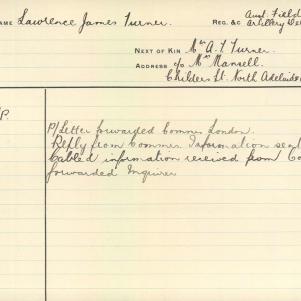 AME Lawrence James Turner. REG. &c Aust. Field
Artillery
NEXT OF KIN Mrs A. T. Turner.
ADDRESS c/o Mrs Mansell.
Childers St. North Adelaide
P.
P/Letter forwarded Commrs London.
Reply from Commrs Information sent
Cabled information received from Co
forwarded Inquirer